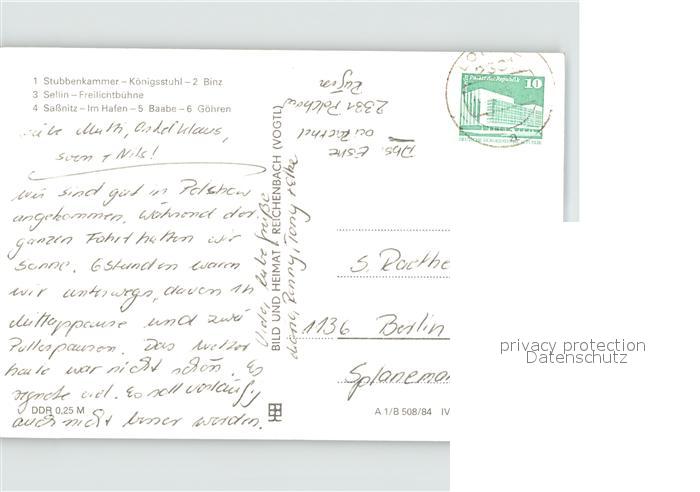 1 Stubbenkammer – Königsstuhl – 2 Binz
3 Sellin – Freilichtbühne
4 Saßnitz – Im Hafen – 5 Baabe – 6 Göhren
Liebe Mutti, Onkel Klaus,
Sven + Nils!
Wir sind gut in Polchow
angekommen. Während der
ganzen Fahrt hatten wir
Sonne. 6 Stunden waren
wir unterwegs, davon 1h
Mittagspause und zwei
Pullerpausen. Das Wetter
heute war nicht schön. Es
regnete viel. Es soll vorläufig
auch nicht besser werden.
Viele liebe Grüße
Ronny, Tony
DDR 0,25 M
BILD UND HEIMAT REICHENBACH (VOGTL)
Abs.
2331 Polchow
Rügen
10
S.
1136 Berlin
Splaneman
A 1/B 508/84 IV
privacy protection
Datenschutz